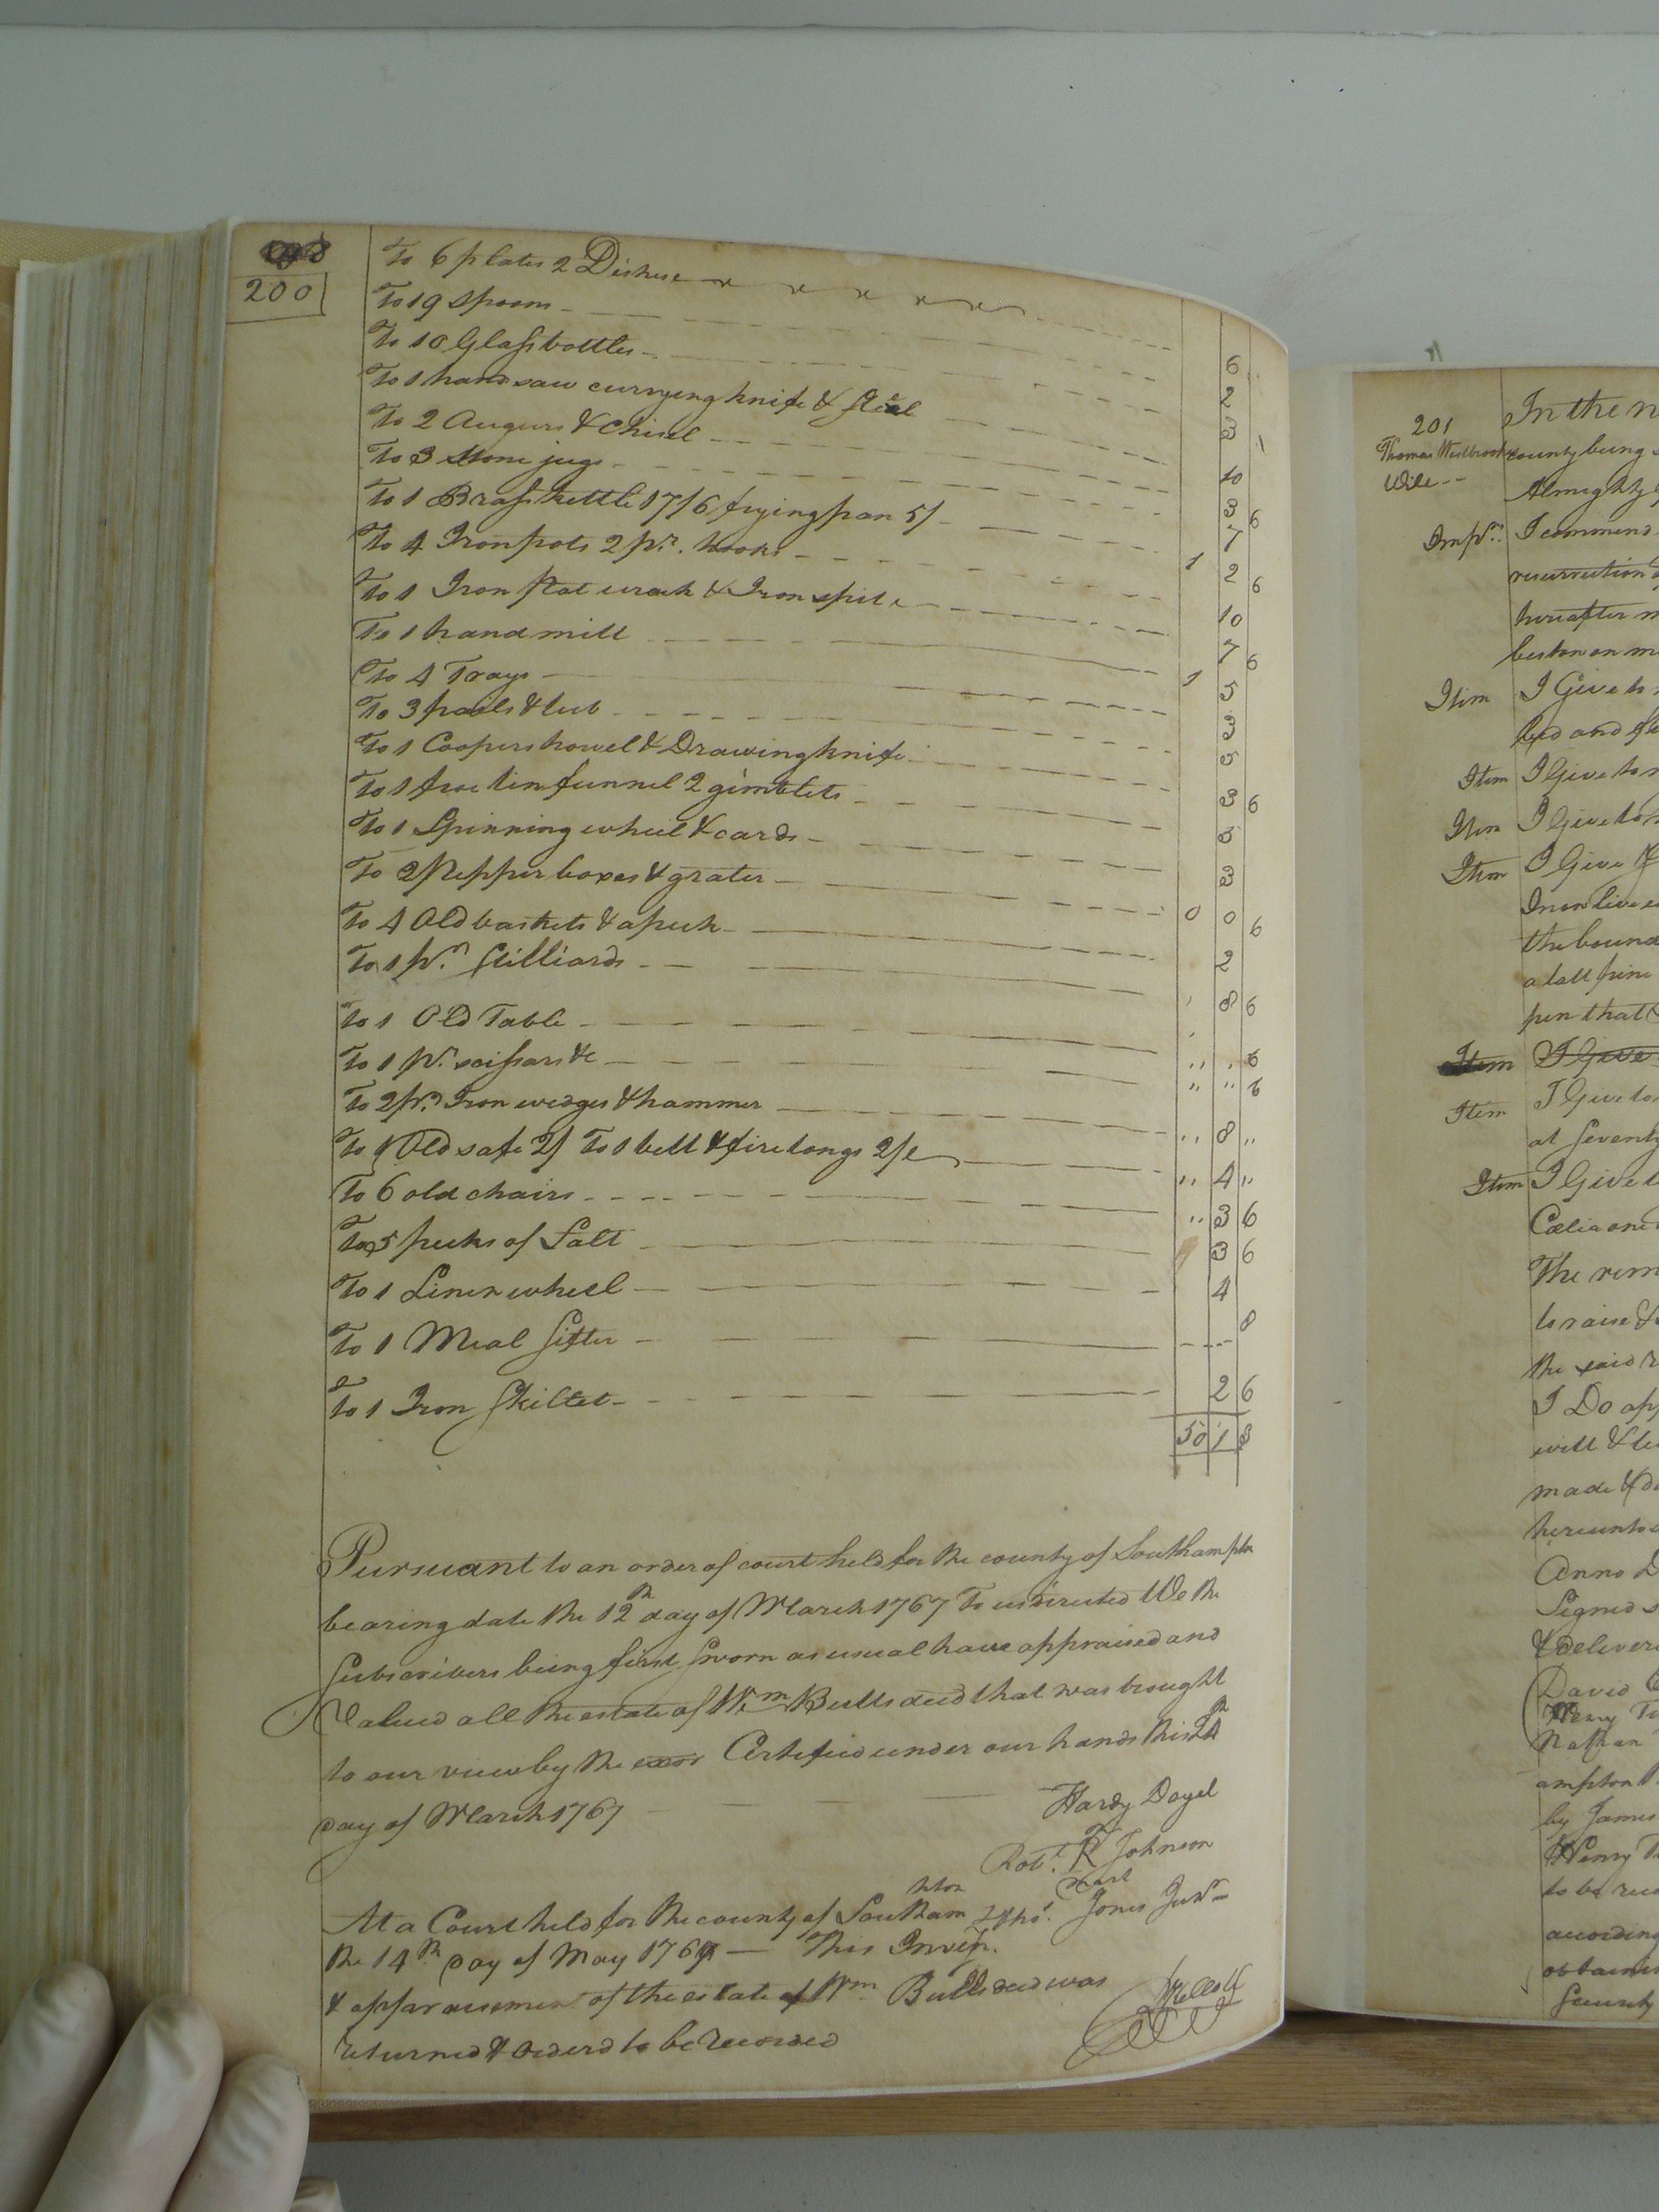 198
200
To 6 plates 2 Dishese
To 19 Spoons 6
To 10 Glass bottles 2
To 1 hand saw currying knife & Steel 3
To 2 Augurs & Chisel 10
To 3 Stone jugs 3 6
To 1 Brass kettle 17/6 frying pan 5/ 7
To 4 Iron pots 2 pr. hooks 1 2 6
To 1 Iron & Iron spit 10
To 1 hand mill 7 6
To 4 Trays 1 5
To 3 pails & tub 3
To 1 Coopers howel & Drawing knife 5
To 1 froe tin funnel 2 gimblets 3 6
To 1 Spinning wheel & cards 5
To 2 Pepper boxes & grater 3
To 4 Old baskets & a peck 0 0 6
To 1 pr. Stilliards 2
To 1 Old Table 8 6
To 1 pr. scissars &c 6
To 2 pr. Iron wedges & hammer 6
To 1 Old safe 2/ To 1 bell & fire tongs 2/ 8
To 6 old chairs 4
To 5 pecks of Salt 3 6
To 1 Linen wheel 3 6
4
To 1 Meal Sifter 8
To 1 Iron Skillet 2 6
50 1 8
Pursuant to an order of court held for the county of Southampton
bearing date the 12th day of March 1767 To us directed We the
Subscribers being first Sworn as usual have appraised and
Valued all the estate of Wm Bulls decd that was brought
to our view by the exor Certified under our hands this 24th
Day of March 1767
Hardy Doyel
Robt. R Johnson
mark
Thos. Jones Junr
At a Court held for the county of Southampton
the 14th Day of May 1767 — This Inven.
& apparaisement of the estate of Wm. Bulls decd was
returned & orderd to be recorded
201
Thomas Westbrooks
Wile
In the n
county being
Almighty
Impr. I commend
resurrection
hereafter m
bestow on m
Item I Give to
bed and
Item I Give to
Item I Give to
Item I Give
the bound
a tall pine
pen that
Item I Give
Item I Give to
at Seventy
Item I Give t
Celia one
The rem
to raise &
the said
I Do app
will & te
made & d
hereunto
Anno D
Signed s
& deliver
David
Henry
Nathan
ampton
by James
Henry
to be rec
according
obtain
Security